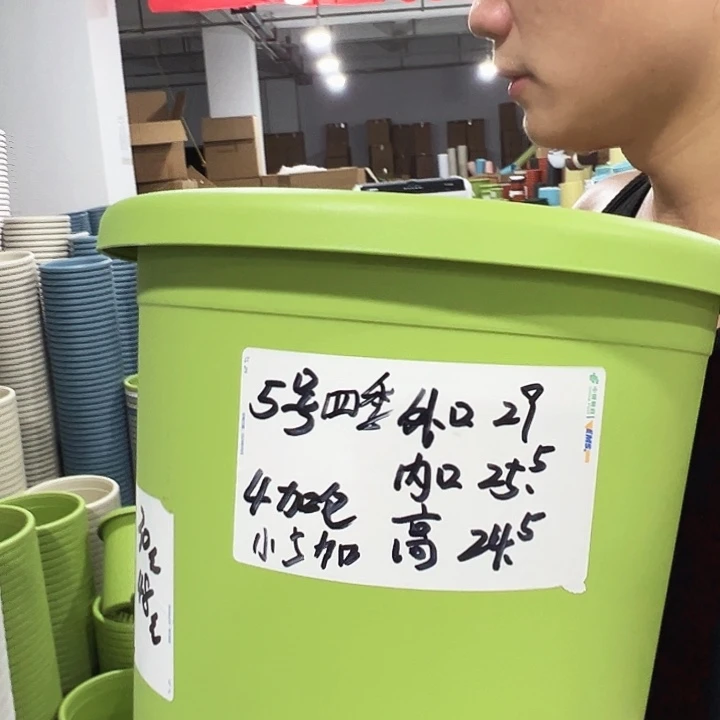 5号四季 外口 29
内口 25.5
4加仑
小5加 高 24.5
EMS